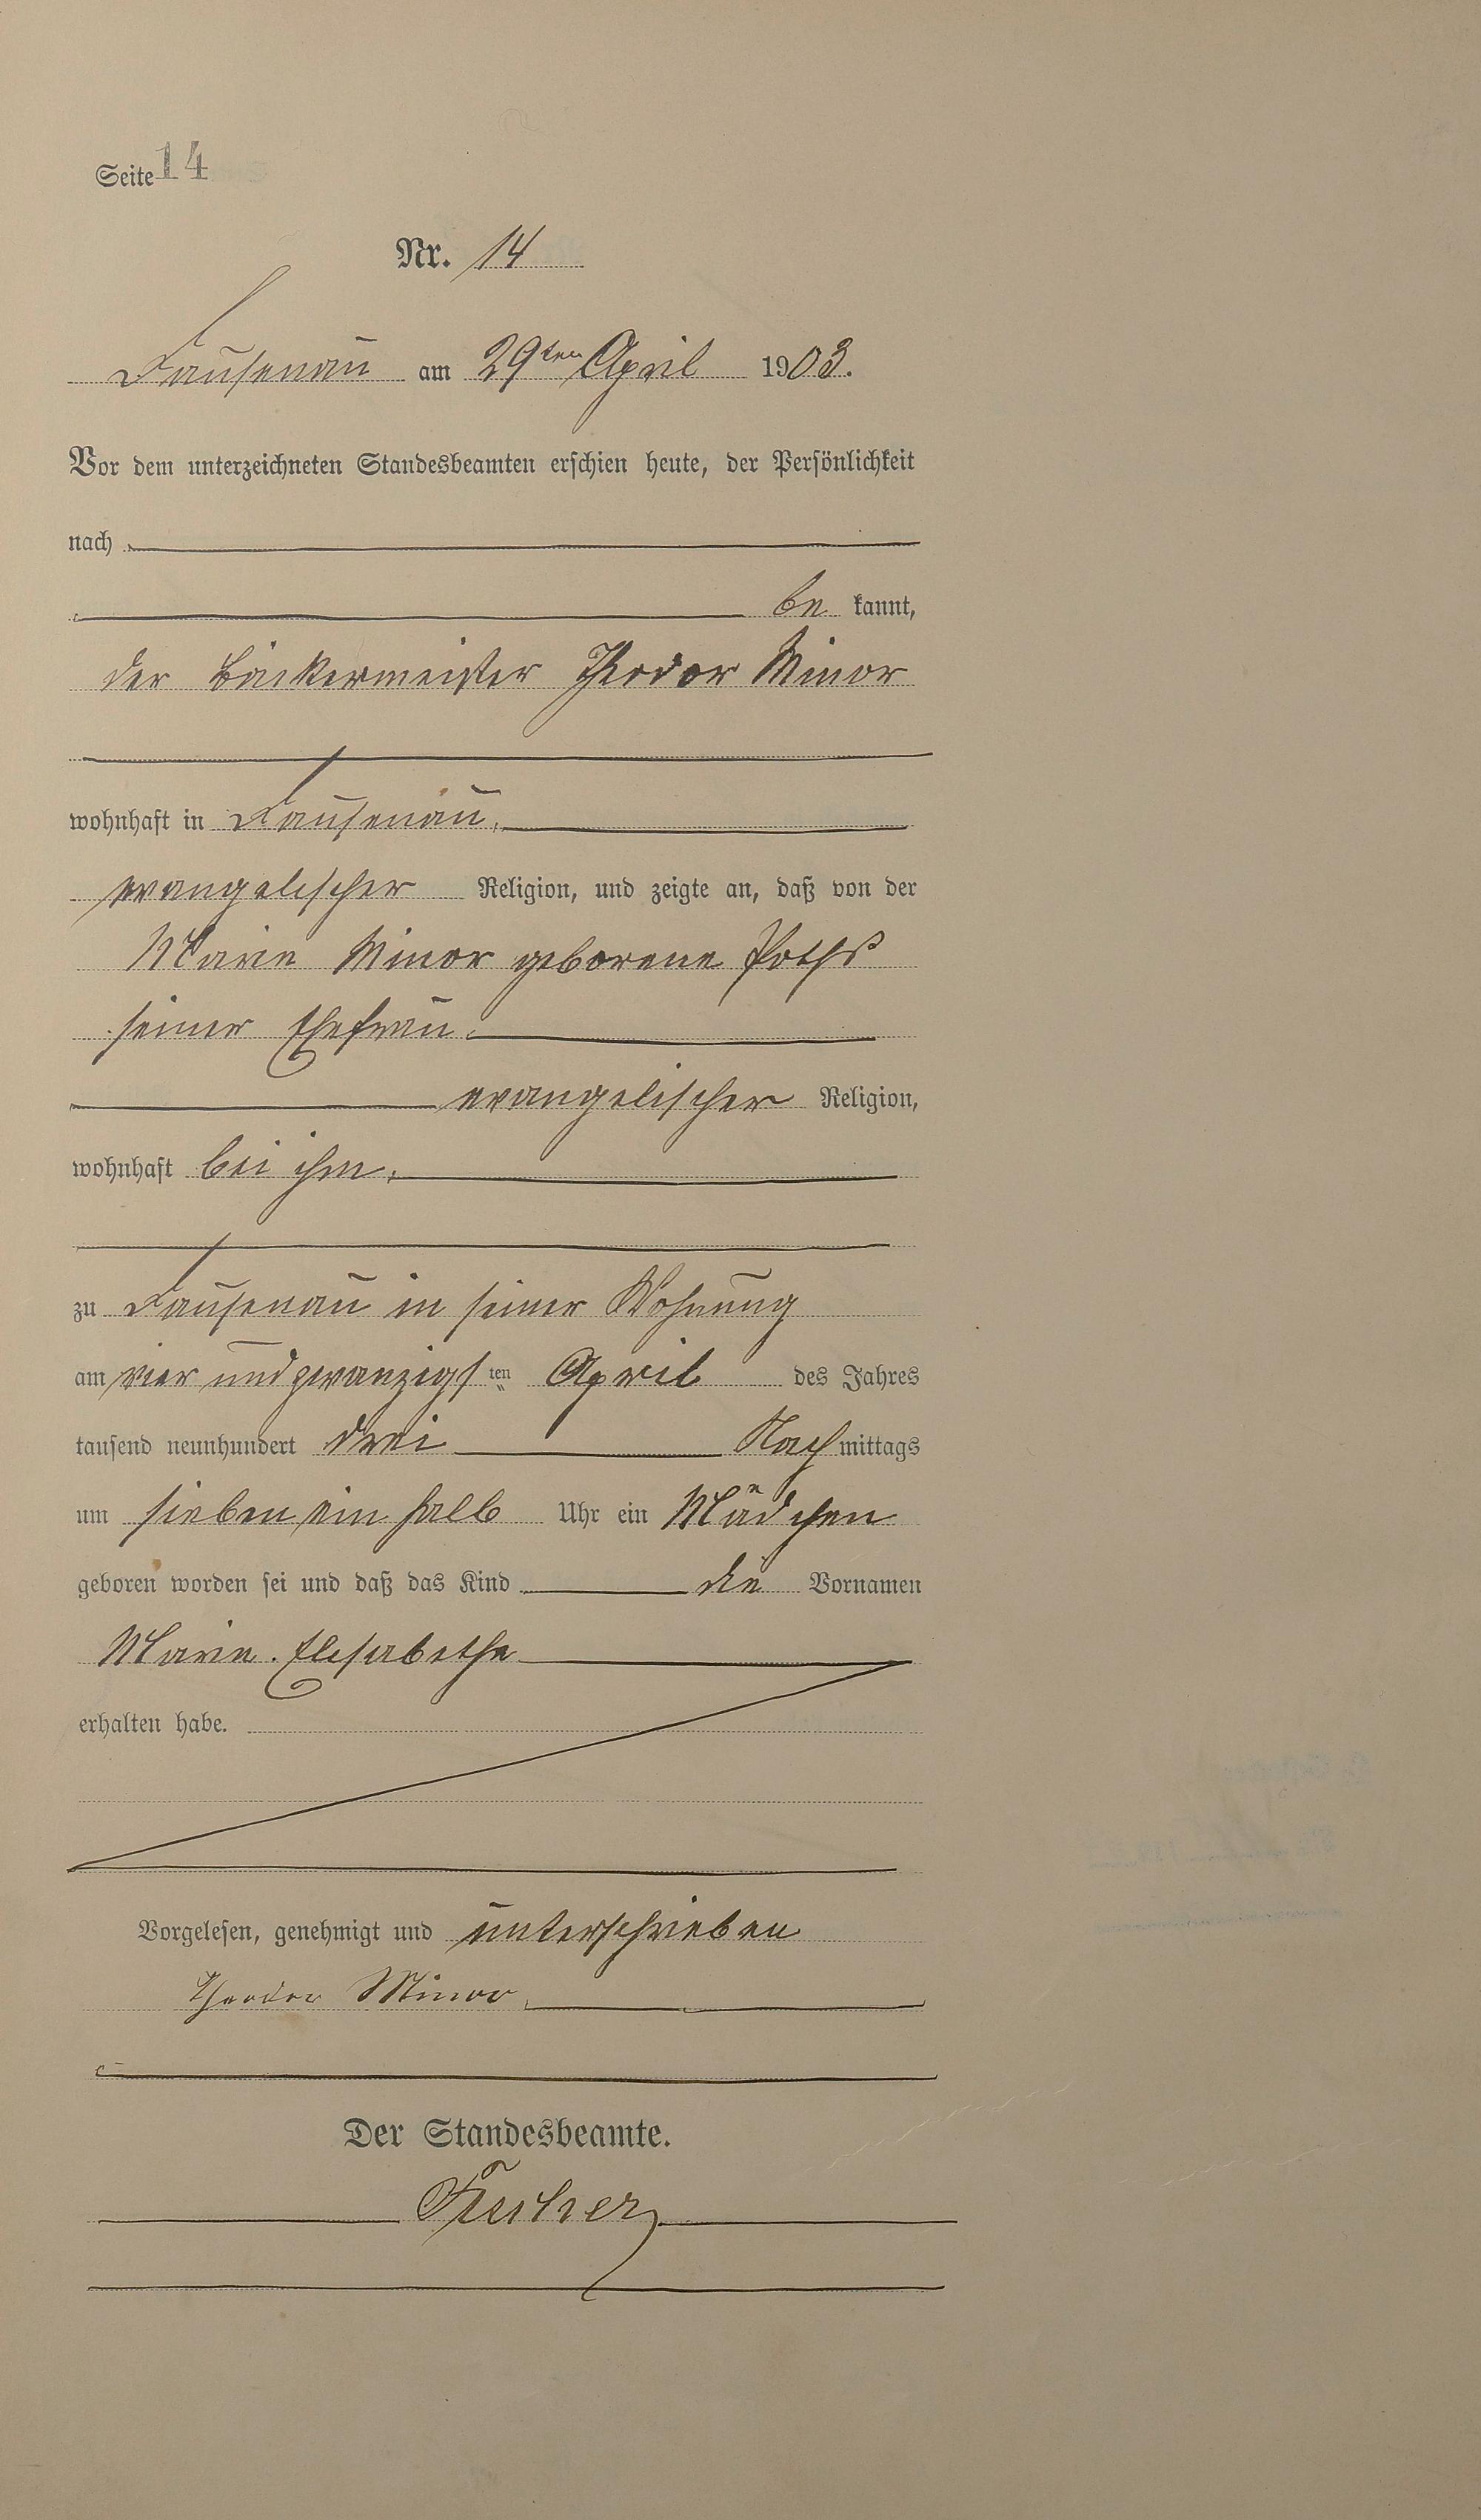 Seite 14
Nr. 14
Dausenau am 29ten April 1903.
Vor dem unterzeichneten Standesbeamten erschien heute, der Persönlichkeit
nach
be kannt,
der Bäckermeister Theodor Minor
wohnhaft in Dausenau,
evangelischer Religion, und zeigte an, daß von der
Marie Minor geborene Poths
seiner Ehefrau,
evangelischer Religion,
wohnhaft bei ihm,
zu Dausenau in seiner Wohnung
am vier und zwanzigsten April des Jahres
tausend neunhundert drei Nachmittags
um sieben ein halb Uhr ein Mädchen
geboren worden sei und daß das Kind die Vornamen
Marie Elisabethe
erhalten habe.
Vorgelesen, genehmigt und unterschrieben
Theodor Minor,
Der Standesbeamte.